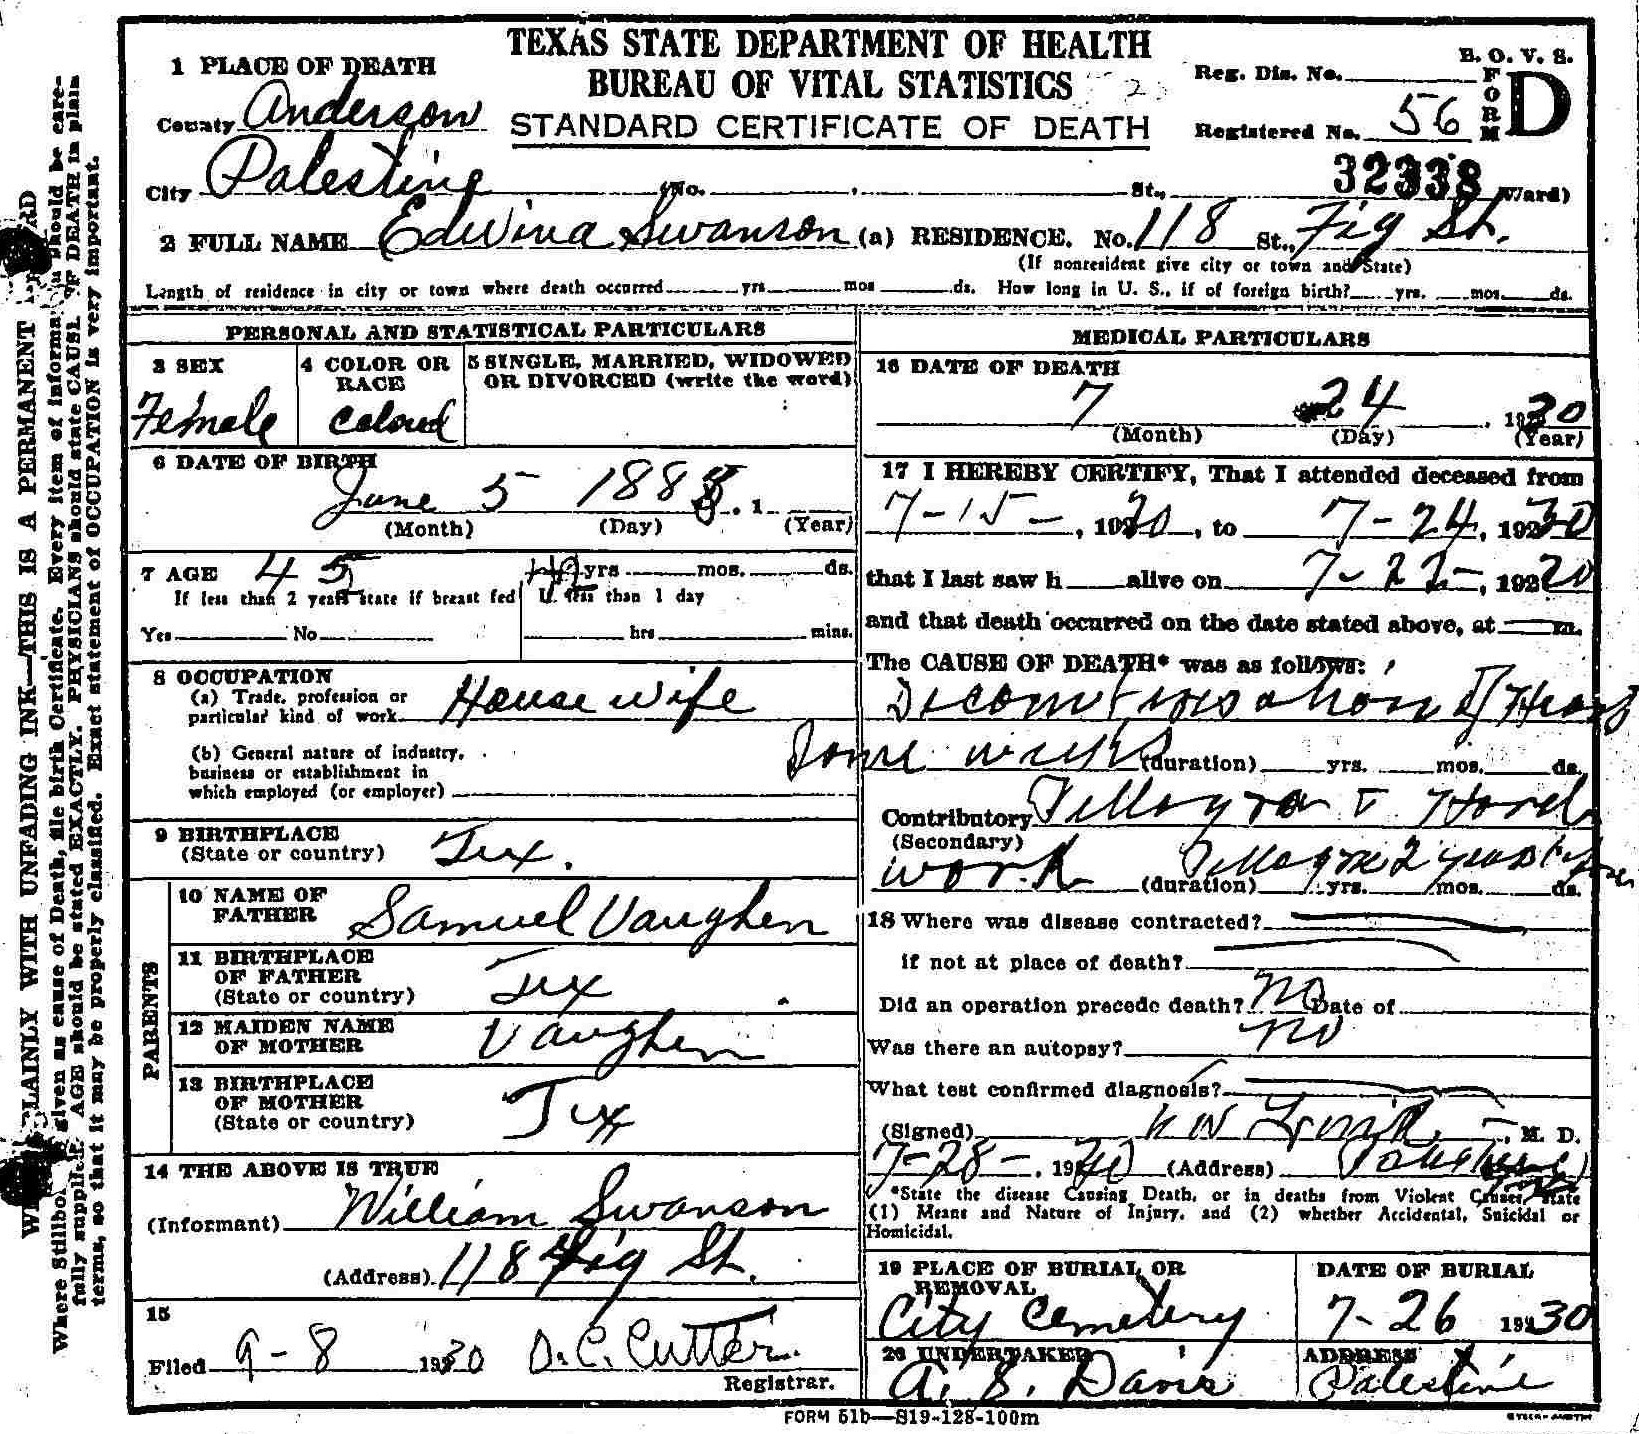 TEXAS STATE DEPARTMENT OF HEALTH
BUREAU OF VITAL STATISTICS
STANDARD CERTIFICATE OF DEATH
B. O. V. S.
FORM D
Reg. Dis. No.
Registered No. 56
32338
1 PLACE OF DEATH
County Anderson
City Palestine (No. St., Ward)
2 FULL NAME Edwina Swanson (a) RESIDENCE. No. 118 St., Fig St.
(If nonresident give city or town and State)
Length of residence in city or town where death occurred yrs. mos. ds. How long in U. S., if of foreign birth? yrs. mos. ds.
PERSONAL AND STATISTICAL PARTICULARS
3 SEX
Female
4 COLOR OR RACE
Colored
5 SINGLE, MARRIED, WIDOWED
OR DIVORCED (write the word)
6 DATE OF BIRTH
June 5 188
(Month) (Day) (Year)
7 AGE 45 yrs mos. ds.
If less than 2 years state if breast fed If less than 1 day
Yes No hrs mins.
8 OCCUPATION
(a) Trade, profession or
particular kind of work House wife
(b) General nature of industry,
business or establishment in
which employed (or employer)
9 BIRTHPLACE
(State or country) Tex.
PARENTS
10 NAME OF
FATHER Samuel Vaughen
11 BIRTHPLACE
OF FATHER
(State or country) Tex
12 MAIDEN NAME
OF MOTHER Vaughen
13 BIRTHPLACE
OF MOTHER
(State or country) Tex
14 THE ABOVE IS TRUE
(Informant) William Swanson
(Address) 118 Fig St.
15
Filed 9-8 1930 D. C. Cutter
Registrar.
MEDICAL PARTICULARS
16 DATE OF DEATH
7 24 1930
(Month) (Day) (Year)
17 I HEREBY CERTIFY, That I attended deceased from
7-15-, 1930, to 7-24, 1930
that I last saw h alive on 7-22-, 1930
and that death occurred on the date stated above, at m.
The CAUSE OF DEATH* was as follows:
Decompensation of Heart
Some weeks (duration) yrs. mos. ds.
Contributory Pellagra & Hard
(Secondary)
work Pellagra 2 years before
(duration) yrs. mos. ds.
18 Where was disease contracted?
if not at place of death?
Did an operation precede death? no Date of
Was there an autopsy? no
What test confirmed diagnosis?
(Signed) Smith, M. D.
7-28-, 1930 (Address) Palestine
*State the disease Causing Death, or in deaths from Violent Causes, state
(1) Means and Nature of Injury, and (2) whether Accidental, Suicidal or
Homicidal.
19 PLACE OF BURIAL OR
REMOVAL
City Cemetery
DATE OF BURIAL
7-26 1930
20 UNDERTAKER
A. S. Davis
ADDRESS
Palestine
FORM 51b—819-128-100m
PLAINLY WITH UNFADING INK—THIS IS A PERMANENT
given as cause of Death, file birth Certificate. Every item of information should be care-
fully supplied. AGE should be stated EXACTLY. PHYSICIANS should state CAUSE OF DEATH in plain
terms, so that it may be properly classified. Exact statement of OCCUPATION is very important.